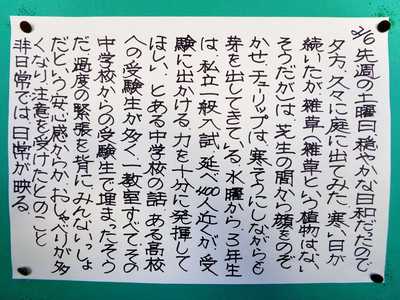 2/6 先週の土曜日、穏やかな日和だったので
夕方、久々に庭に出てみた。寒い日が
続いたが、雑草(雑草という植物はない
そうだが)は、芝生の間から顔をのぞ
かせ、チューリップは、寒そうにしながらも
芽を出してきている。水曜から、3年生
は、私立一般入試。延べ400人近くが、受
験に出かける。力を十分に発揮して
ほしい。とある中学校の話。ある高校
への受験生が多く、一教室すべてその
中学校からの受験生で埋まったそう
だ。過度の緊張を背に、みんないっしょ
だという安心感からか、おしゃべりが多
くなり、注意を受けたとのこと。
非日常では、日常が映る。